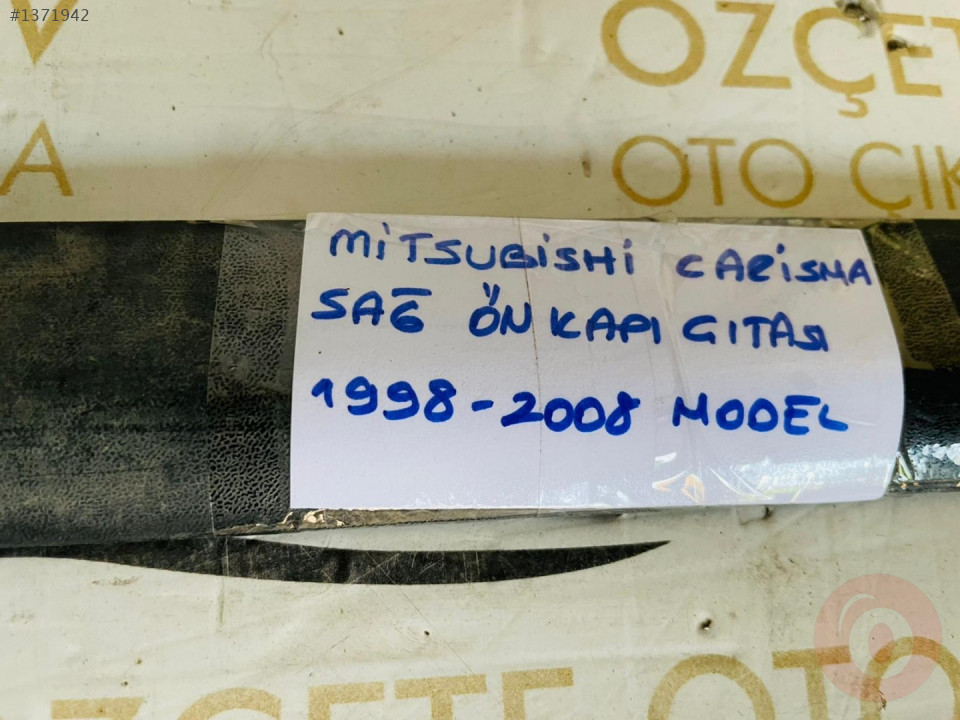 #1371942
V
A
ÖZÇET
OTO ÇIK
MİTSUBİSHİ CARİSMA
SAĞ ÖN KAPI GITASI
1998-2008 MODEL
ÖZÇETE OTO